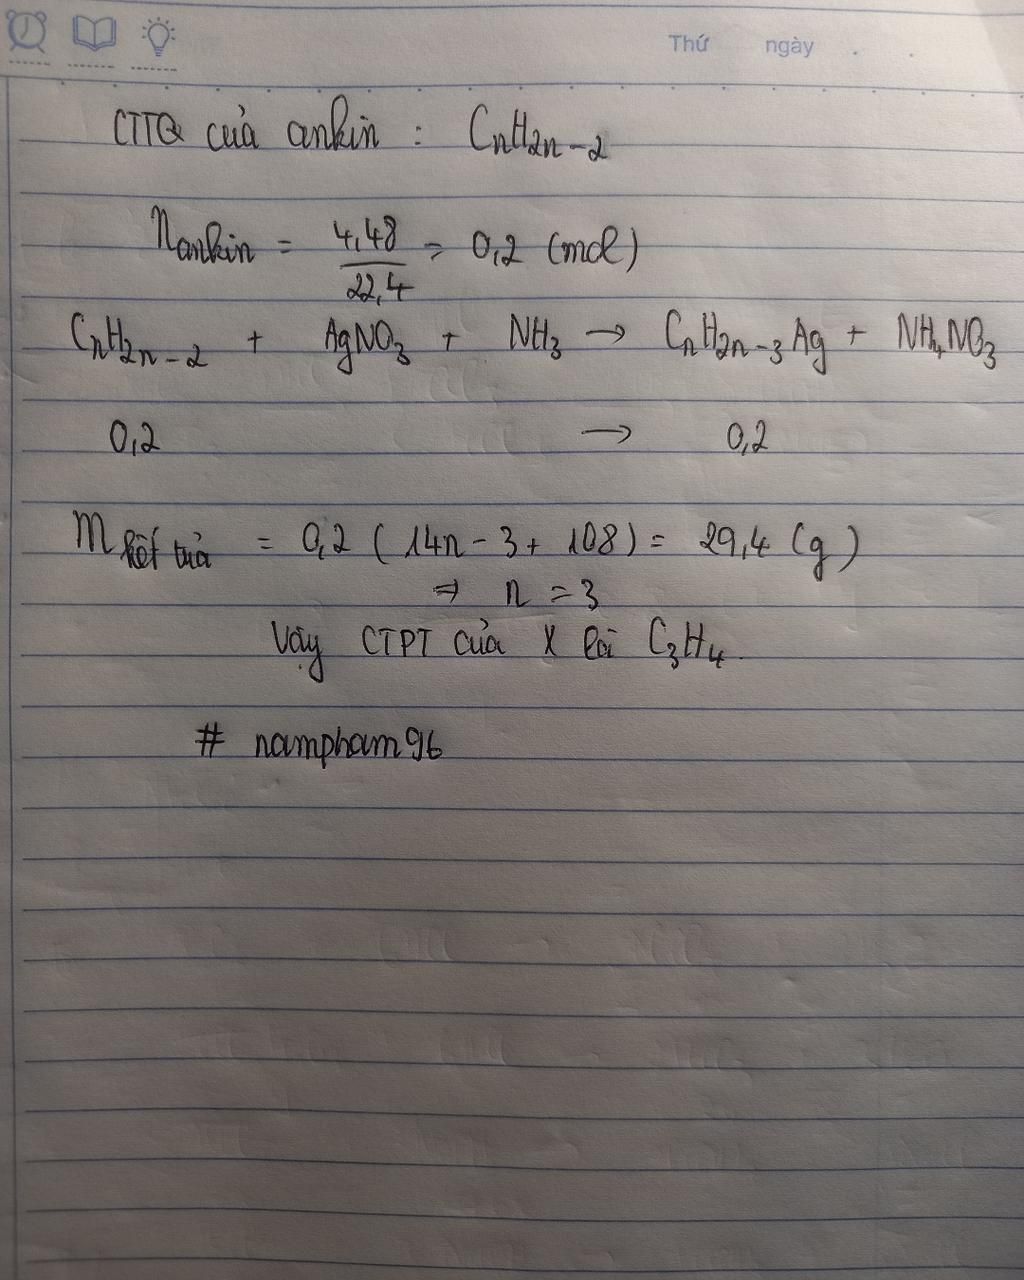 Thứ ngày . .
CTTQ của ankin : CₙH₂ₙ₋₂
nankin = 4,48/22,4 = 0,2 (mol)
CₙH₂ₙ₋₂ + AgNO₃ + NH₃ → CₙH₂ₙ₋₃Ag + NH₄NO₃
0,2 → 0,2
m kết tủa = 0,2 (14n - 3 + 108) = 29,4 (g)
⇒ n = 3
Vậy CTPT của X là C₃H₄.
# nampham96